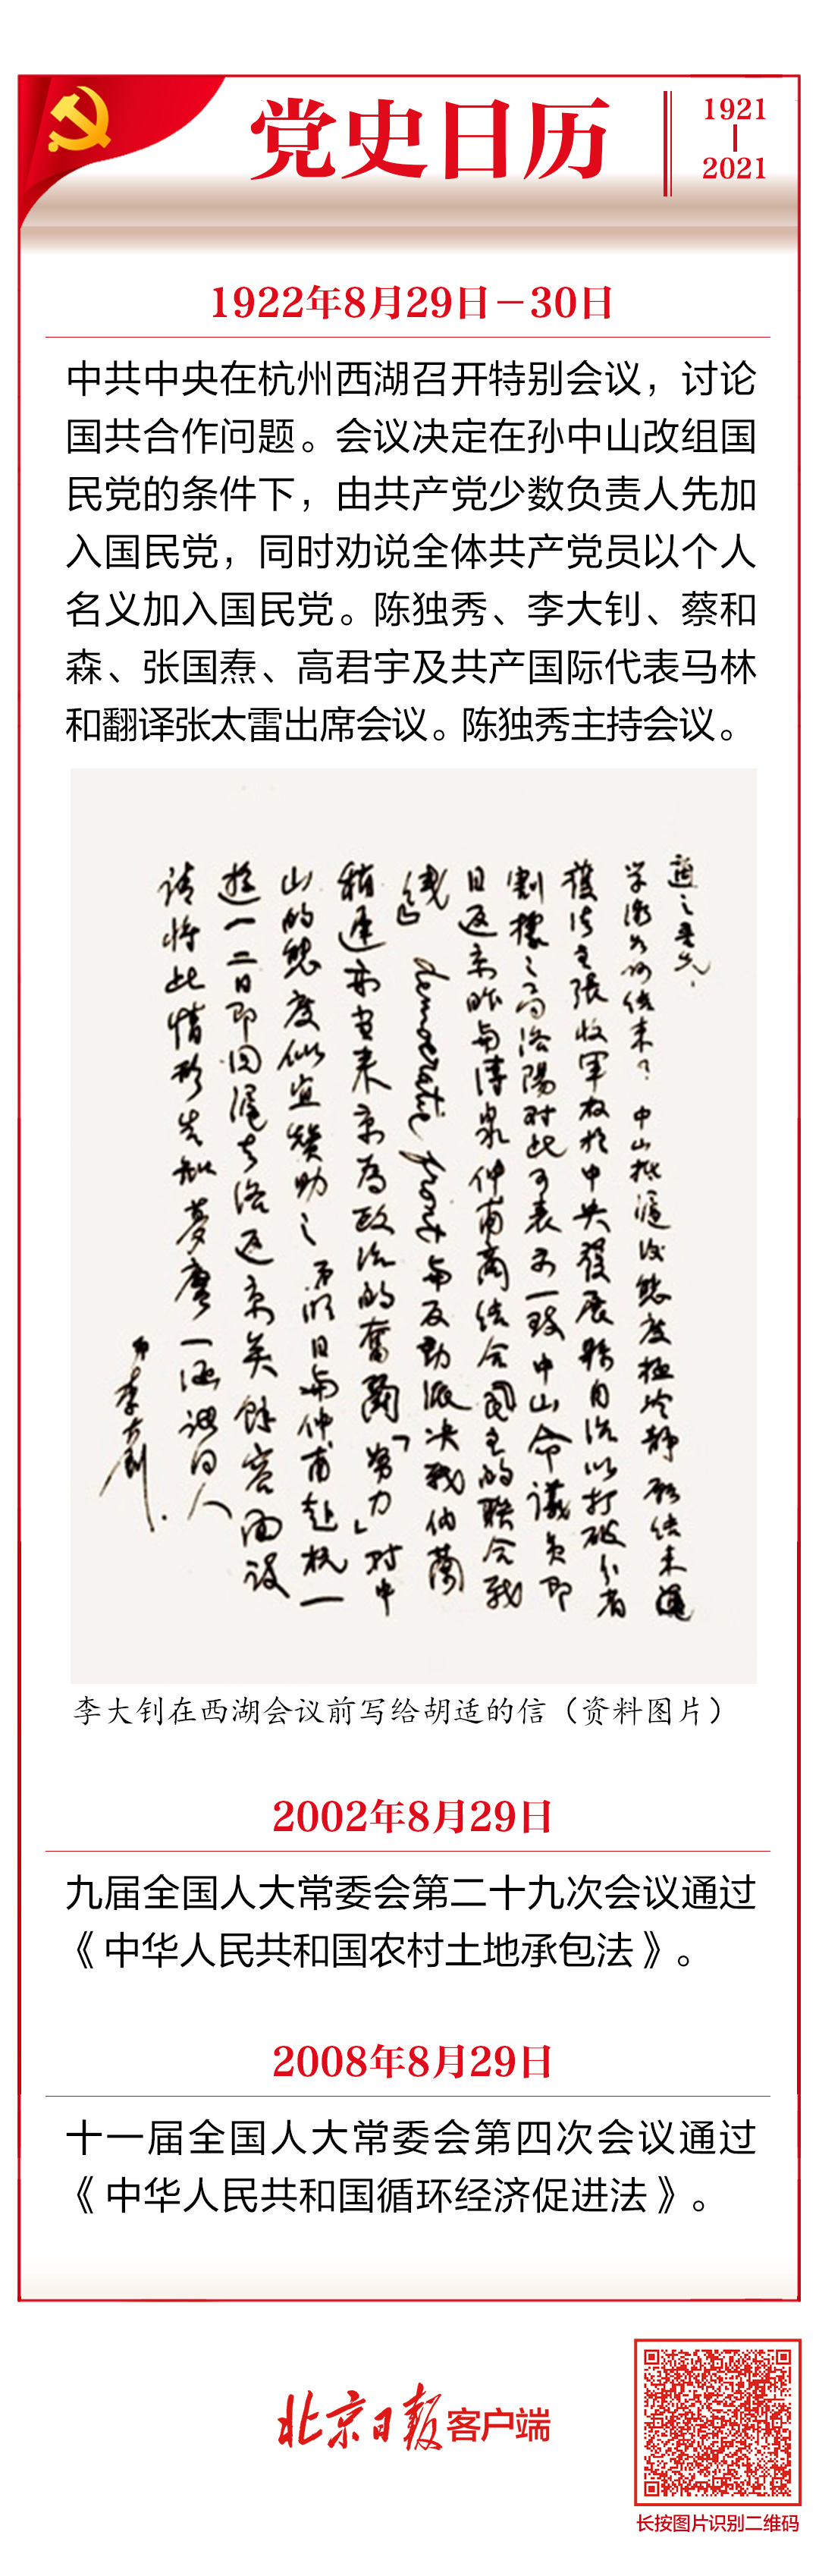 党史日历
1921
2021
1922年8月29日—30日
中共中央在杭州西湖召开特别会议，讨论
国共合作问题。会议决定在孙中山改组国
民党的条件下，由共产党少数负责人先加
入国民党，同时劝说全体共产党员以个人
名义加入国民党。陈独秀、李大钊、蔡和
森、张国焘、高君宇及共产国际代表马林
和翻译张太雷出席会议。陈独秀主持会议。
適之吾兄
学潮如何结束？中山抵滬後態度極冷静 愿结束護
獲法主張收军权於中央發展縣自治以打破分省
割據之局洛陽对此可表示一致中山命議员即
日返京昨与溥泉仲甫商结合民主的联合战
线 democratic front 与反動派决战伯蘭
稍迟亦当来京為政治的奮闘「努力」对中
山的態度似宜赞助之 弟明日与仲甫赴杭一
遊一二日即回滬去洛返京矣餘容面谈
请将此情形告知夢麐一涵诸同人
弟李大钊
李大钊在西湖会议前写给胡适的信（资料图片）
2002年8月29日
九届全国人大常委会第二十九次会议通过
《中华人民共和国农村土地承包法》。
2008年8月29日
十一届全国人大常委会第四次会议通过
《中华人民共和国循环经济促进法》。
北京日报客户端
长按图片识别二维码